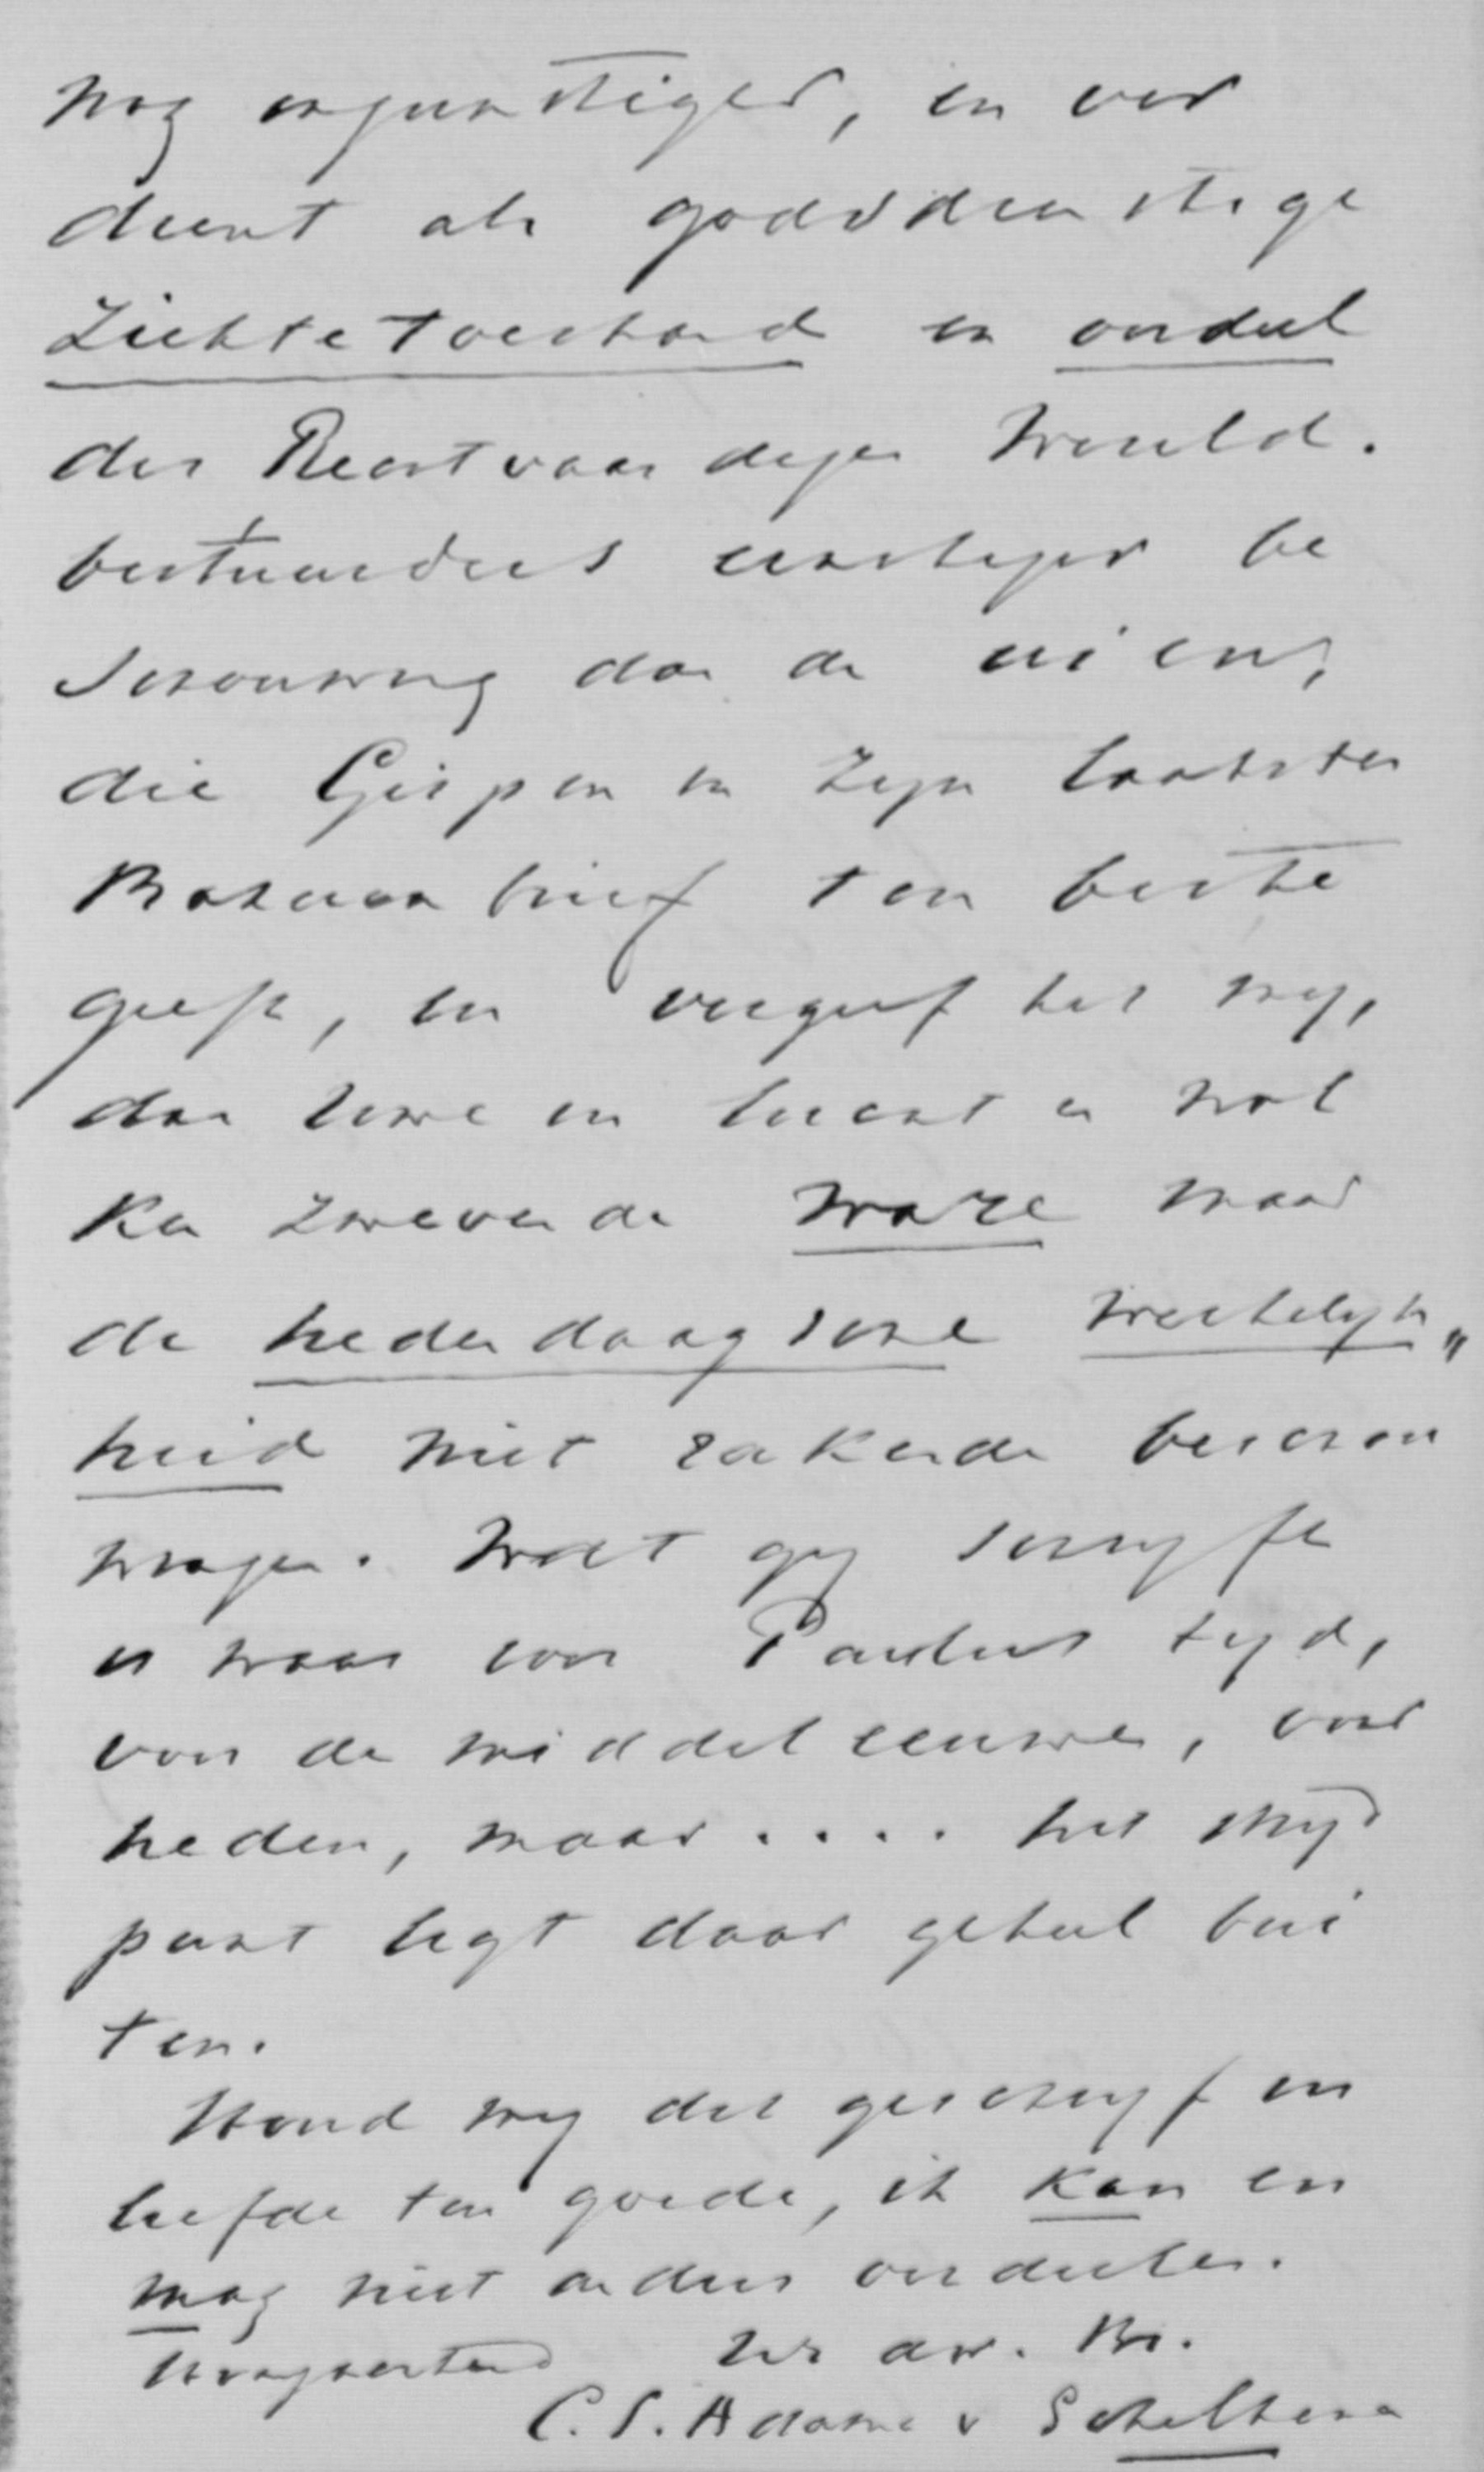 nog ongunstiger, en ver
dient als godsdienstige
Ziekte toestand en oordeel
des Rechtvaardigen Wereld.
bestuurders ernstiger be
schouwing dan de uwe,
die Gispen in zijn laatsten
Bazuin brief ten beste
geeft, en vergeef het mij,
dan uwe in lucht en wol
ken zwevende ware maar
de hedendaagsche werkelijk„
heid niet rakende beschou
wingen. Wat gij schrijft
is waar voor Paulus tijd,
voor de middeleeuwen, voor
heden, maar.... het strijd
punt ligt daar geheel bui
ten.
Houd mij dit geschrijf in
liefde ten goede, ik kan en
mag niet anders oordeelen.
Hoogachtend Uw dw. Br.
C. S. Adama v Scheltema